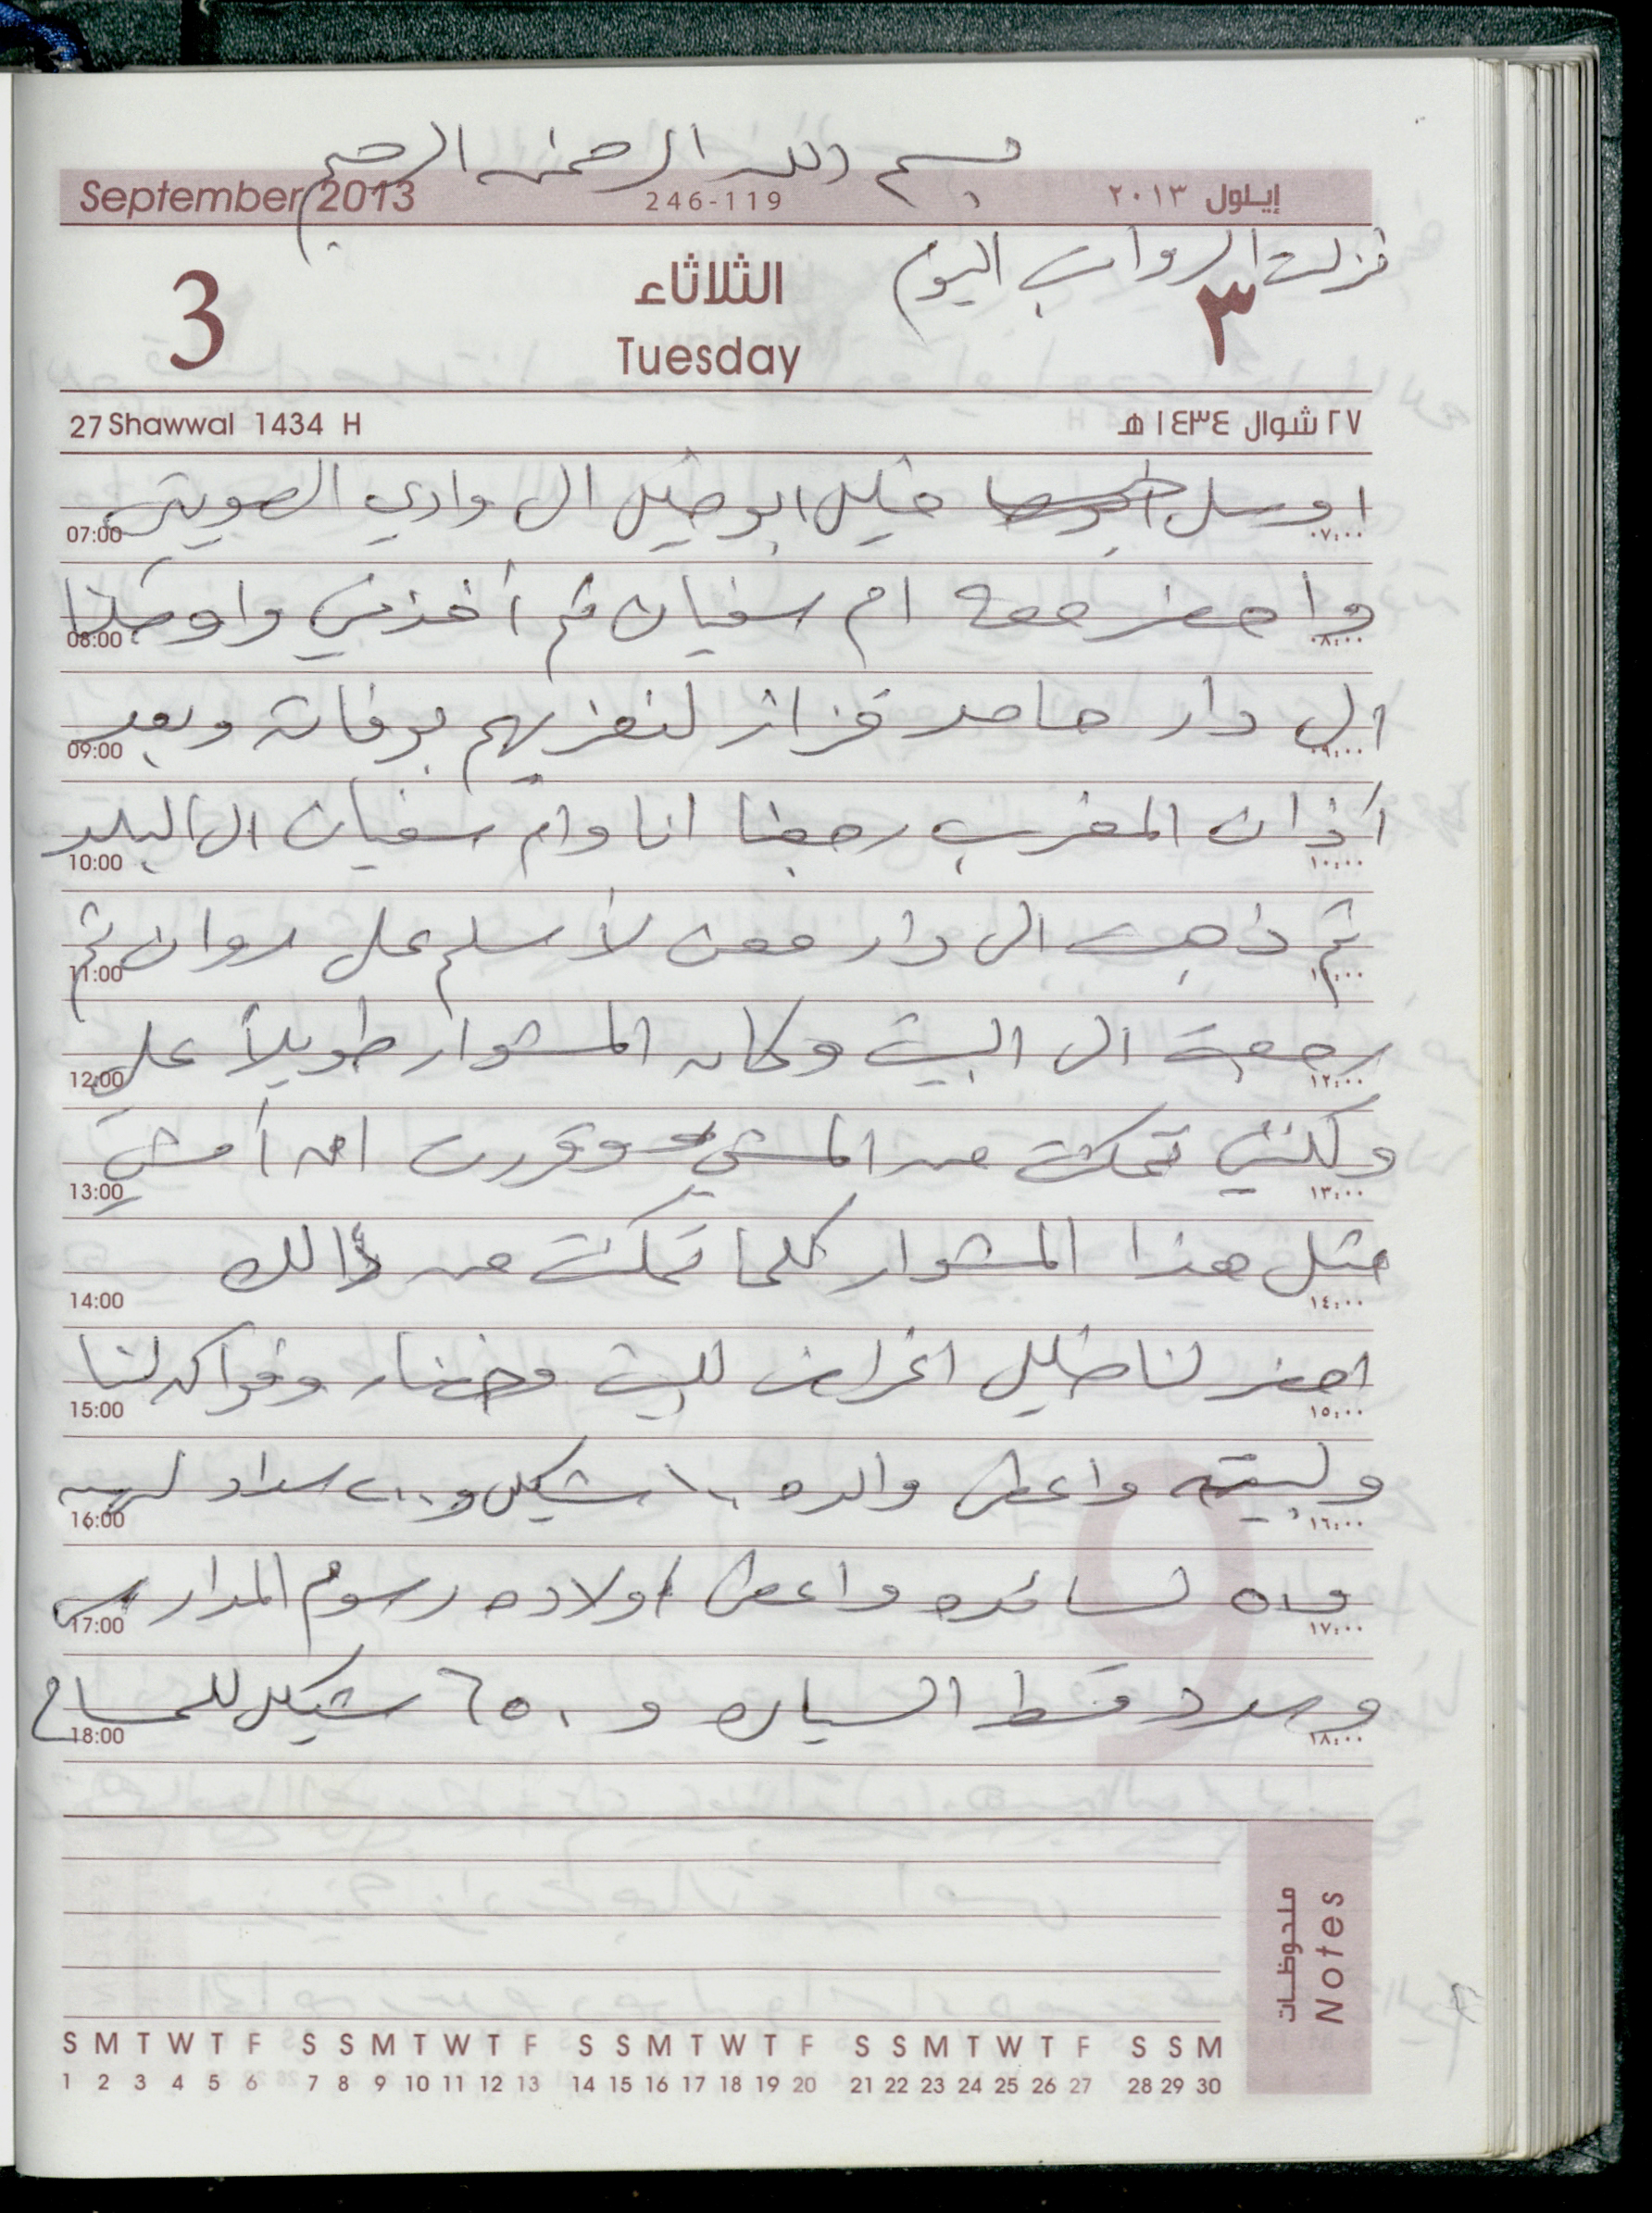 بسم الله الرحمن الرحيم
September 2013 246-119 إيلول ٢٠١٣
نزلت الرواتب اليوم
3 الثلاثاء ٣
Tuesday
27 Shawwal 1434 H ٢٧ شوال ١٤٣٤ هـ
اوصل خليل ابو خليل الى وادي الصويت
07:00 ٠٧:٠٠
واحضر معه ام سفيان ثم أخذني واوصلنا
08:00 ٠٨:٠٠
الى دار حامد قزاز لنعزيهم بوفاة وبعد
09:00 ٠٩:٠٠
اذان المغرب رجعنا انا وام سفيان الى البلد
10:00 ١٠:٠٠
ثم ذهبت الى دار معن لأسلم على روان ثم
11:00 ١١:٠٠
رجعت الى البيت وكان المشوار طويلاً علي
12:00 ١٢:٠٠
ولكنني تمكنت من المشي وقررت ان أمشي
13:00 ١٣:٠٠
مثل هذا المشوار كلما تمكنت من ذالك
14:00 ١٤:٠٠
احضر لنا خليل اغراض للبيت وخضار وفواكه لنا
15:00 ١٥:٠٠
ولبيته واعطى والده ١٠٠ شيكل و ٢٠٠ سداد
16:00 ١٦:٠٠
واعطى اولاده رسوم المدارس
17:00 ١٧:٠٠
وسدد قسط السياره و ٦٥٠ شيكل للمساح
18:00 ١٨:٠٠
ملحوظات
Notes
S M T W T F S S M T W T F S S M T W T F S S M T W T F S S M
1 2 3 4 5 6 7 8 9 10 11 12 13 14 15 16 17 18 19 20 21 22 23 24 25 26 27 28 29 30